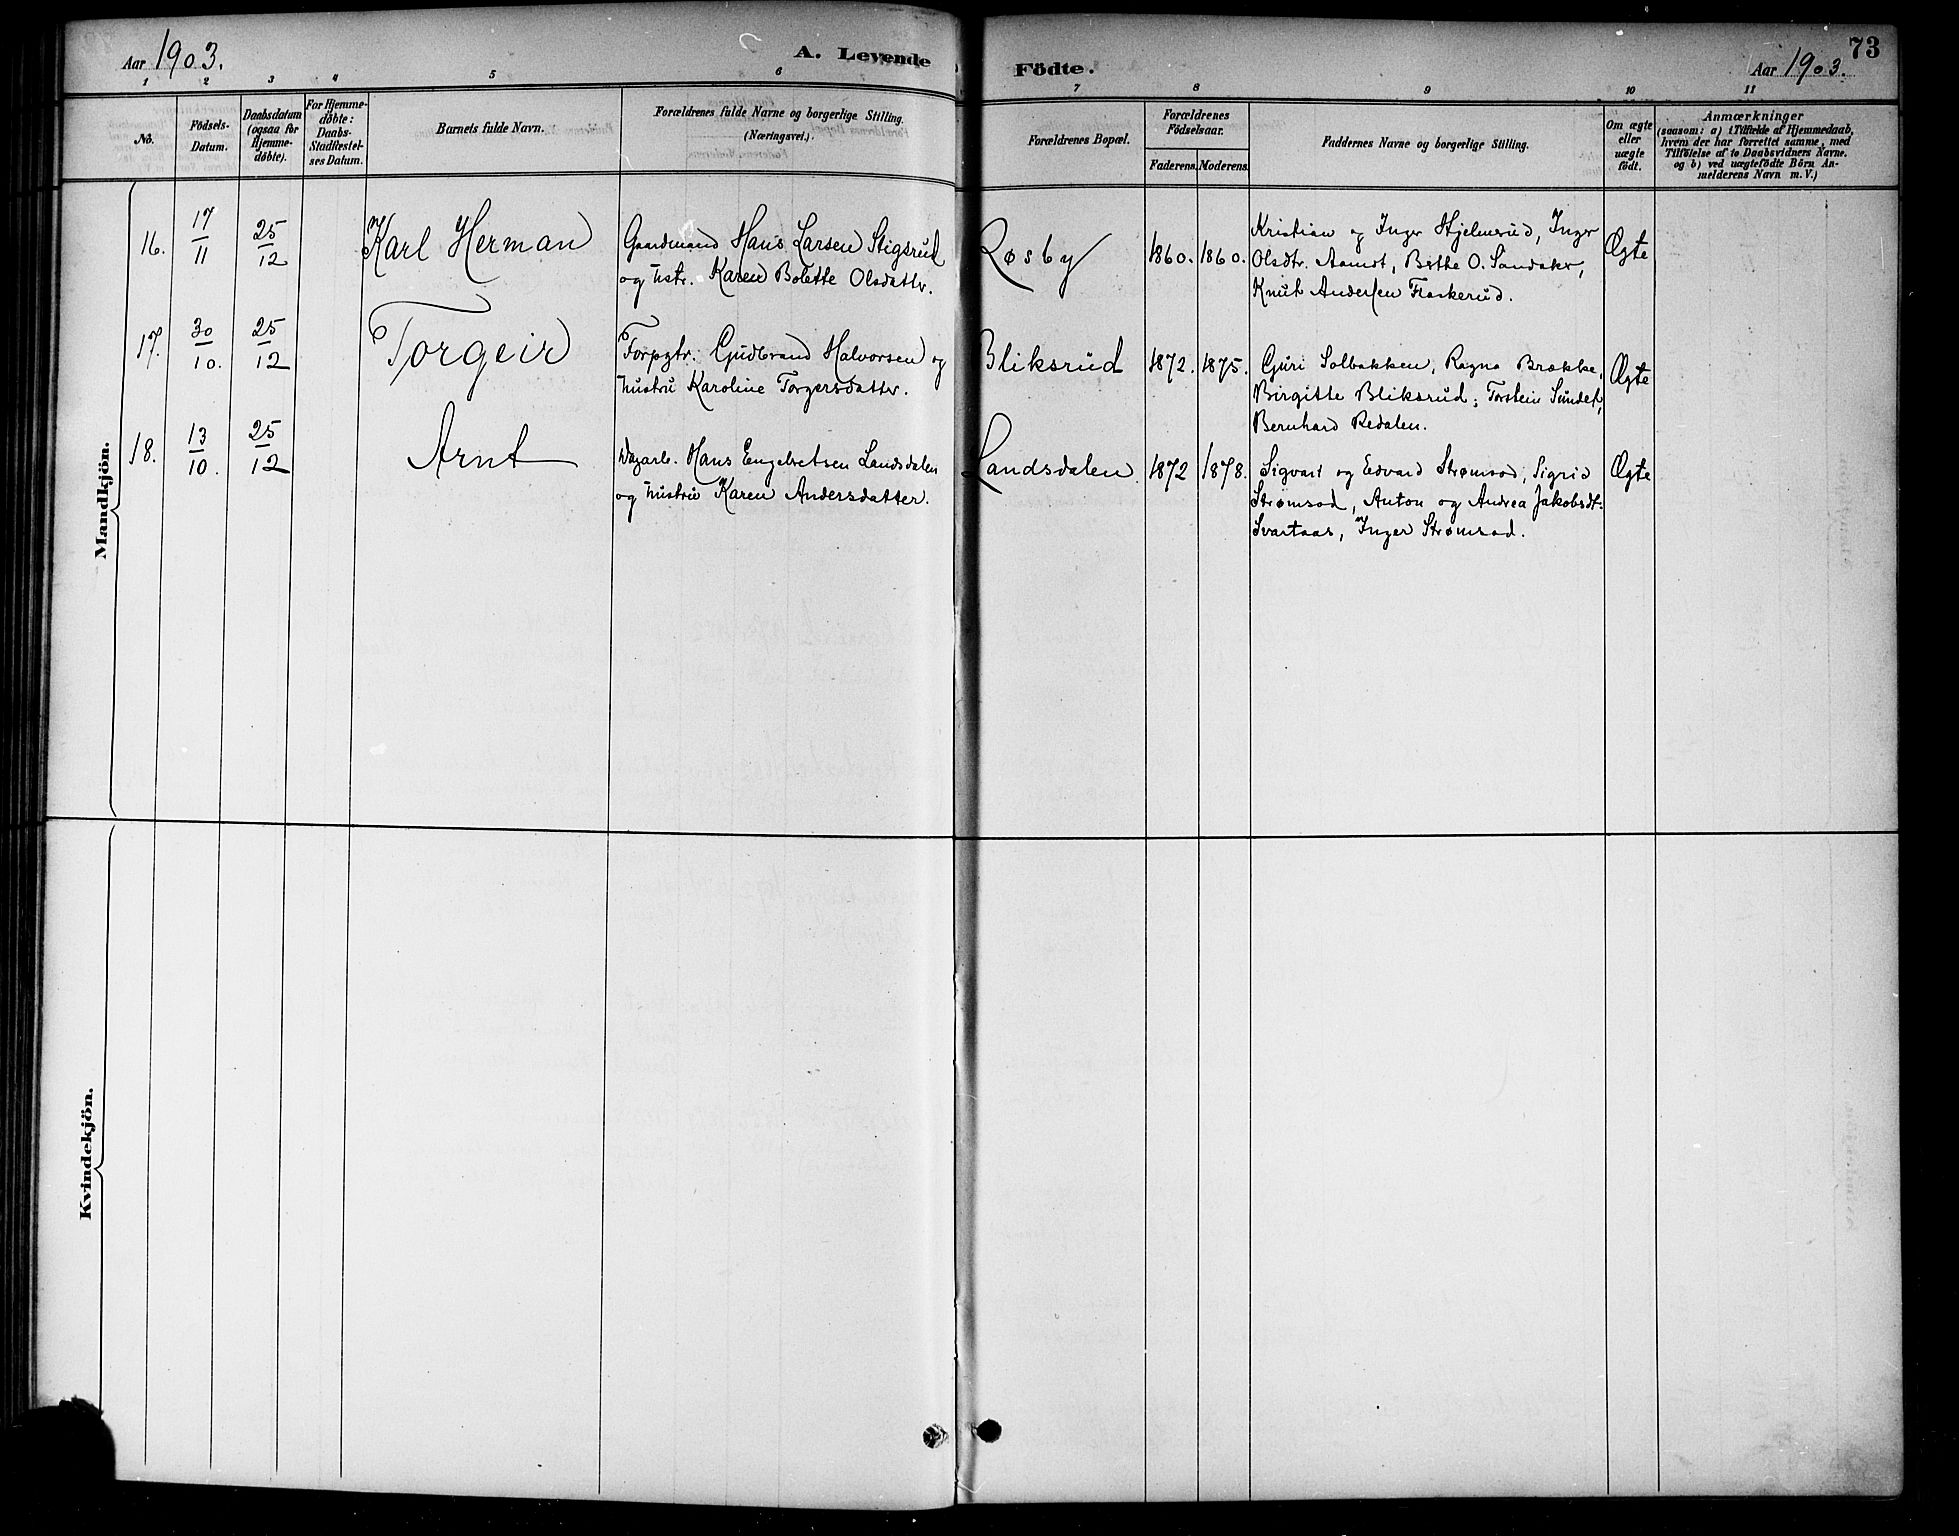 Aar 1903. A. Levende Födte. Aar 1903. 73
1 2 3 4 5 6 7 8 9 10 11
No.
Födsels-
Datum.
Daabsdatum
(ogsaa for
Hjemme-
döbte).
For Hjemme-
döbte:
Daabs-
Stadfæstel-
ses Datum.
Barnets fulde Navn.
Forældrenes fulde Navne og borgerlige Stilling.
(Næringsvei.)
Forældrenes Bopæl.
Forældrenes
Födselsaar.
Faderens. Moderens.
Faddernes Navne og borgerlige Stilling.
Om ægte
eller
uægte
födt.
Anmærkninger
(saasom: a) i Tilfælde af Hjemmedaab,
hvem der har forrettet samme, med
Tilföielse af to Daabsvidners Navne.
og b) ved uægtefödte Börn An-
melderens Navn m. V.)
Mandkjön.
16. 17/11 25/12 Karl Herman Gaardmand Hans Larsen Stigsrud Røsby 1860. 1860. Kristian og Inger Hjelmerud, Inger Ægte
og hstr. Karen Bolette Olsdatter. Olsdtr. Aamot, Berthe O. Sandaker,
Knut Andersen Flaskerud.
17. 30/10. 25/12 Torgeir Forpgtr. Gudbrand Halvorsen og Bliksrud 1872. 1875. Guri Solbakken, Ragna Brække, Ægte
hustru Karoline Torgersdatter. Birgitte Bliksrud, Torstein Sundet,
Bernhard Redalen.
18. 13/10. 25/12 Arnt Dagarb. Hans Engebretsen Landsdalen Landsdalen. 1872 1878. Sigvart og Edvard Strømsod, Sigrid Ægte
og hustru Karen Andersdatter. Strømsod, Anton og Andrea Jakobsdt.
Svartaas, Inger Strømsod.
Kvindekjön.